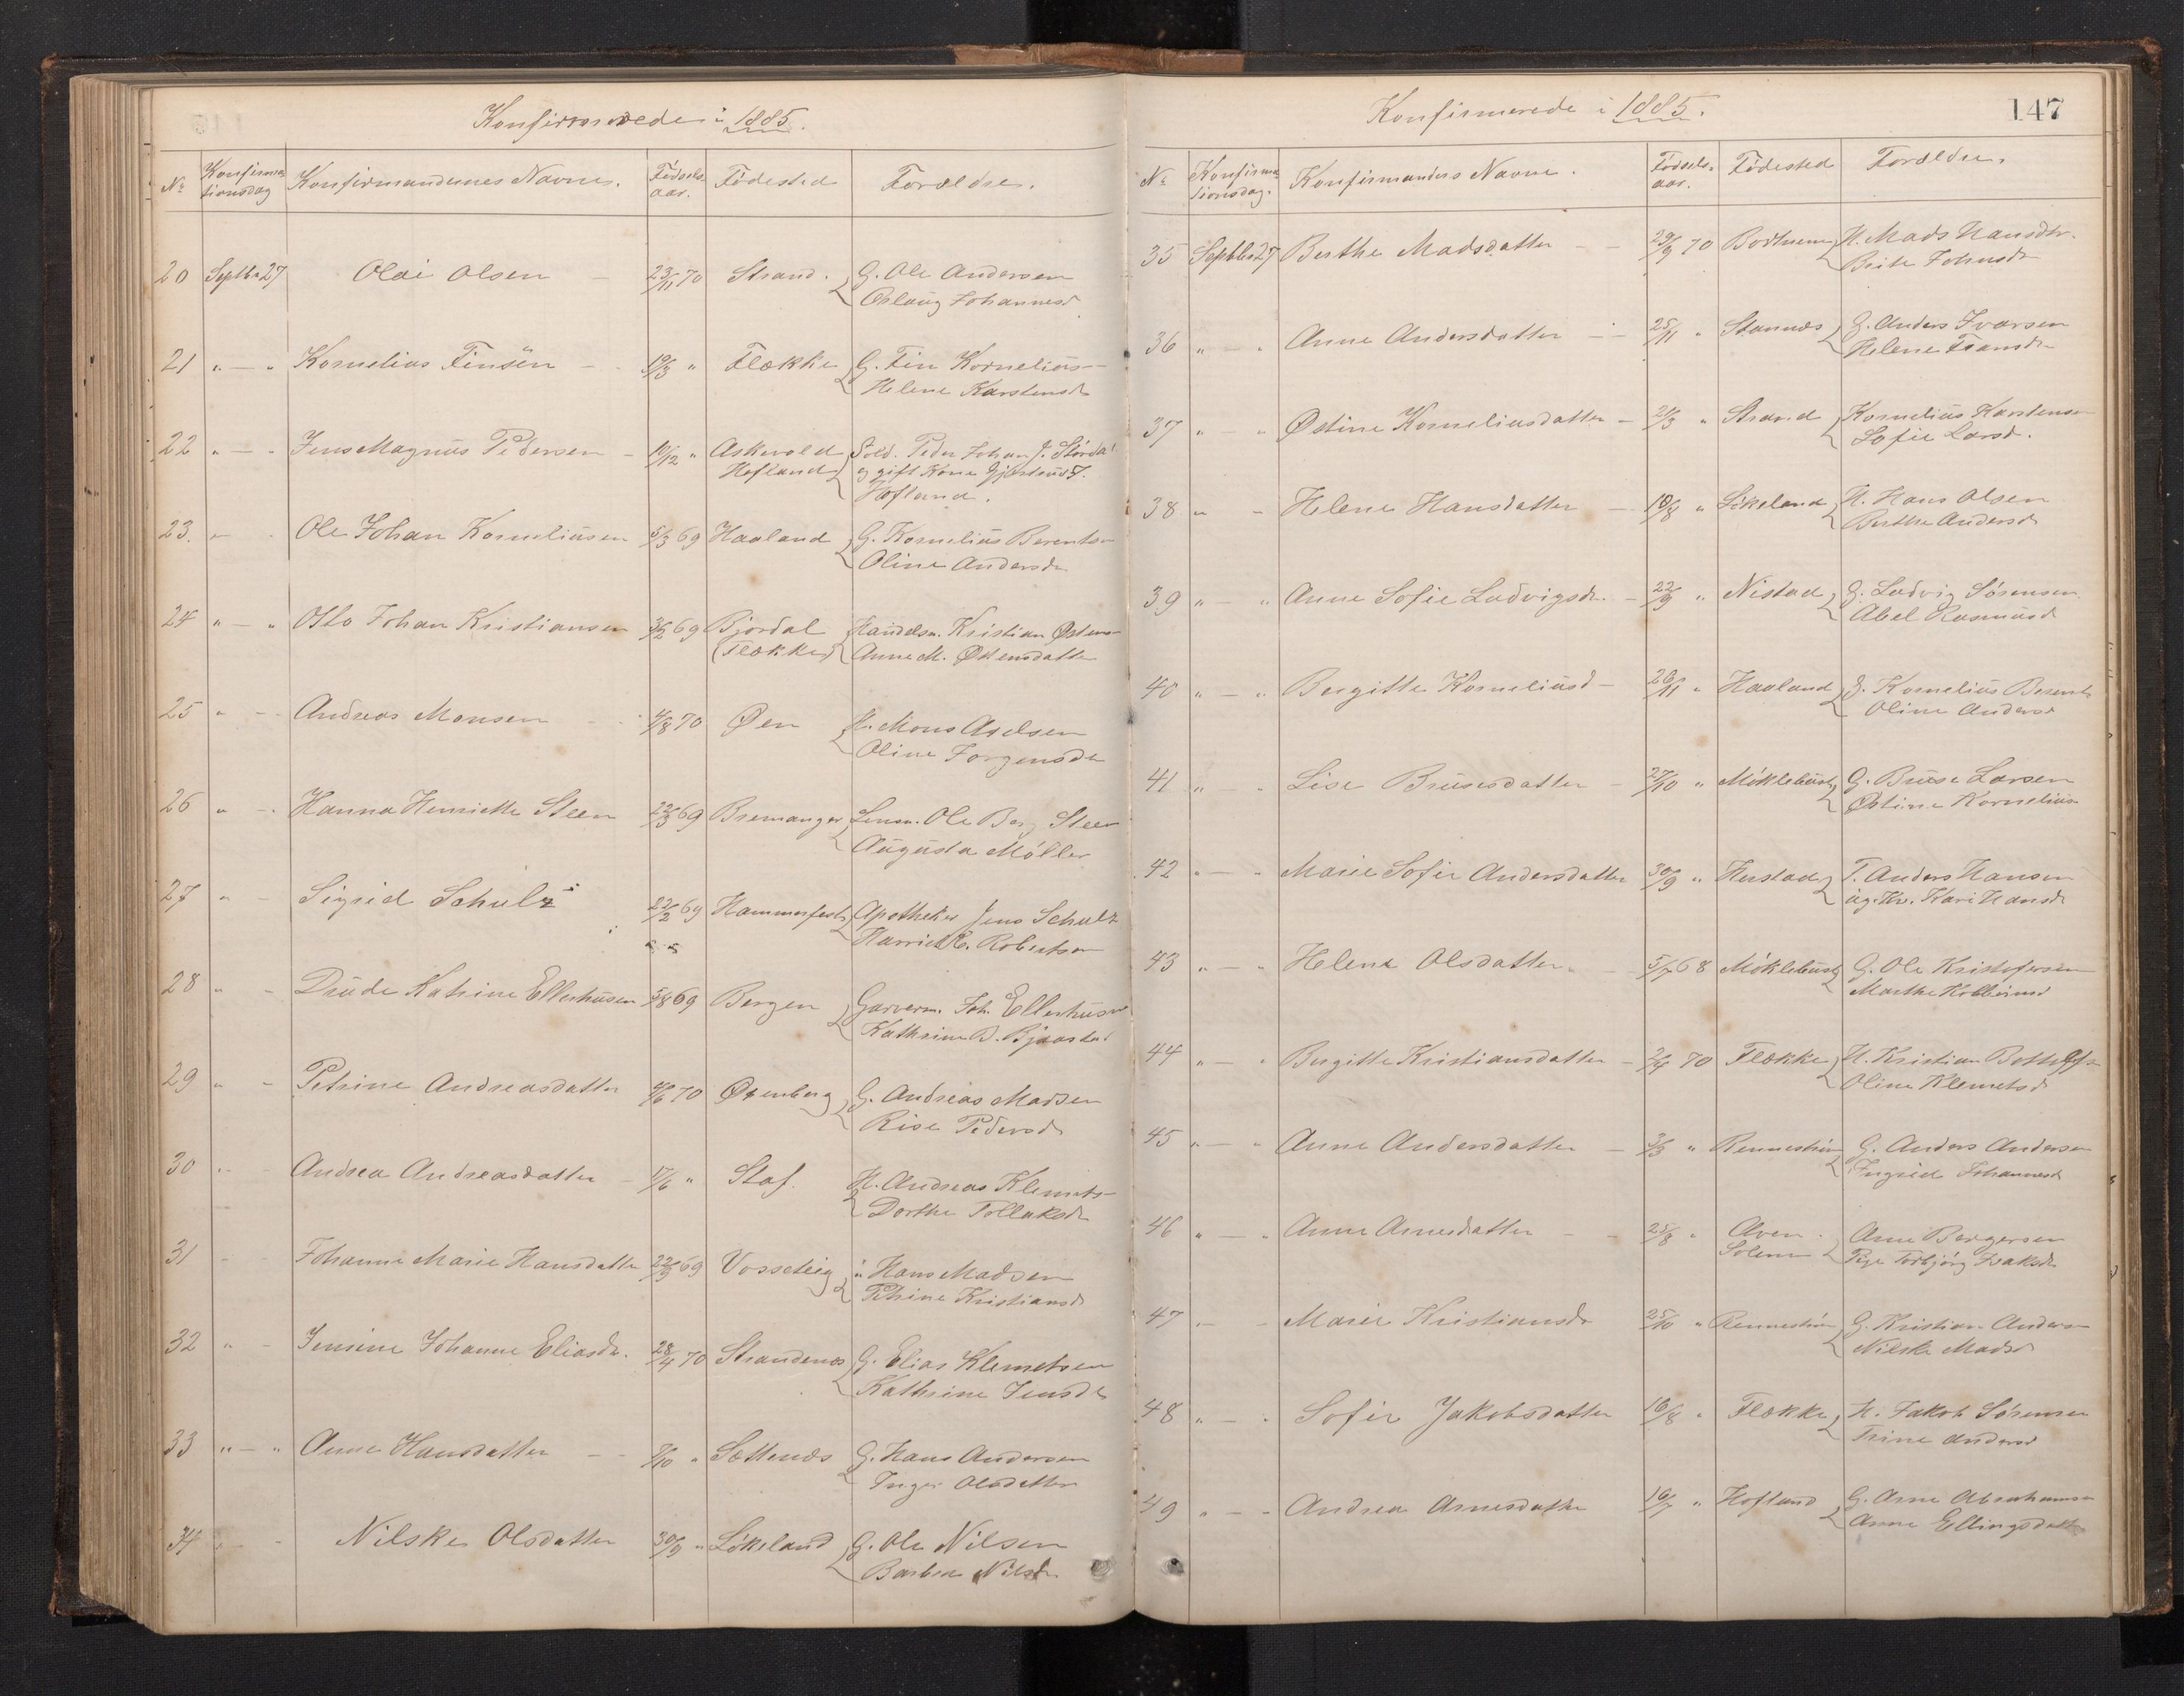 Konfirmerede i 1885.
No Konfirmationsdag Konfirmandernes Navne. Fødsels-aar. Fødested Forældre.
20 Septbr 27 Olai Olsen 23/11 70 Strand. G. Ole Andersen
Oslaug Johannesd
21 " — " Kornelius Finsen 19/3 " Flække G. Fin Kornelius-
Helene Karstensd
22 " — " Jens Magnus Pedersen 10/12 " Askevold Sold. Peder Johan J.
Hofland og gift Kone
Hofland.
23. " Ole Johan Korneliusen 5/3 69 Haaland G. Kornelius Berents-
Oline Andersd
24 " — " Otto Johan Kristiansen 69 Bjordal Handelsm. Kristian Østens-
(Flække) Anne M. Østensdatter
25 " Andreas Monsen 4/8 70 Øen H. Mons
Oline Jørgensdr
26 " Hanna Henriette Steen 22/3 69 Bremanger Lensm. Ole Berg Steen
Augusta Møller
27 " Sigrid Schulz 22/2 69 Hammerfest Apotheker Jens Schulz
Robertson
28 " Drude Katrine Ellerhusen 5/8 69 Bergen Garverm. Joh. Ellerhusen
Kathrine B.
29 " Petrine Andreasdatter 4/6 70 G. Andreas Madsen
Rise Pedersd
30 " Andrea Andreasdatter 17/6 " Staf. H. Andreas Klemets-
Dorthe Tollaksd
31 Johanne Marie Hansdatter 22/9 69 Vosseteig " Hans Madsen
Petrine Kristiansd
32 " Jensine Johanne Eliasdr. 28/4 70 Strandenæs G. Elias Klemetsen
Kathrine Jensdr
33 " — " Anne Hansdatter 7/10 " Sættenæs G. Hans Andersen
Inger Olsdatter
34 " Nilske Olsdatter 30/9 " Løkeland G. Ole Nilsen
Barbra Nilsd
Konfirmerede i 1885. 147
No Konfirmationsdag. Konfirmanders Navne. Fødsels-aar. Fødested Forældre.
35 Septbr 27 Berthe Madsdatter 29/9 70 H. Mads Hansdtr.
Brite Johnsd
36 " — " Anne Andersdatter 25/11 " Stannæs G. Anders Ivarsen
Helene
37 " — " Østine Korneliusdatter 21/3 " Strand Kornelius Karstensen
Sofie Larsd.
38 " — Helene Hansdatter 10/8 " Løkeland H. Hans Olsen
Berthe Andersd
39 " — " Anne Sofie Ludvigsdr. 22/9 " Nistad G. Ludvig Sørensen
Abel Rasmusd
40 " — " Bergitte Korneliusd 26/11 " Haaland G. Kornelius Berents
Oline Andersd
41 " — Lise Brusesdatter 27/10 " Møklebust G. Bruse Larsen
Østine Kornelius
42 " — " Marie Sofie Andersdatter 30/9 " Herstad T. Anders Hansen
ug. Kv. Kari Hansd
43 " — " Helene Olsdatter 5/7 68 Møklebust G. Ole Kristofersen
Marthe
44 " — " Bergitte Kristiansdatter 2/4 70 Flække H. Kristian
Oline Klemetsd
45 " — " Anne Andersdatter 3/3 " G. Anders Andersen
Ingrid Johannesd
46 " — " Anne Arnesdatter 25/8 " Alven Arne Børgersen
Solem Pige Torbjørg Isaksd
47 " — Marie Kristiansdr 25/10 " G. Kristian Andersen
Nilske Madsd
48 " — " Sofie Jakobsdatter 16/8 " Flække H. Jakob Sørensen
Trine Andersd
49 " — " Andrea Arnesdatter 16/7 " Hofland G. Arne Abrahamsen
Anne Ellingsdatter